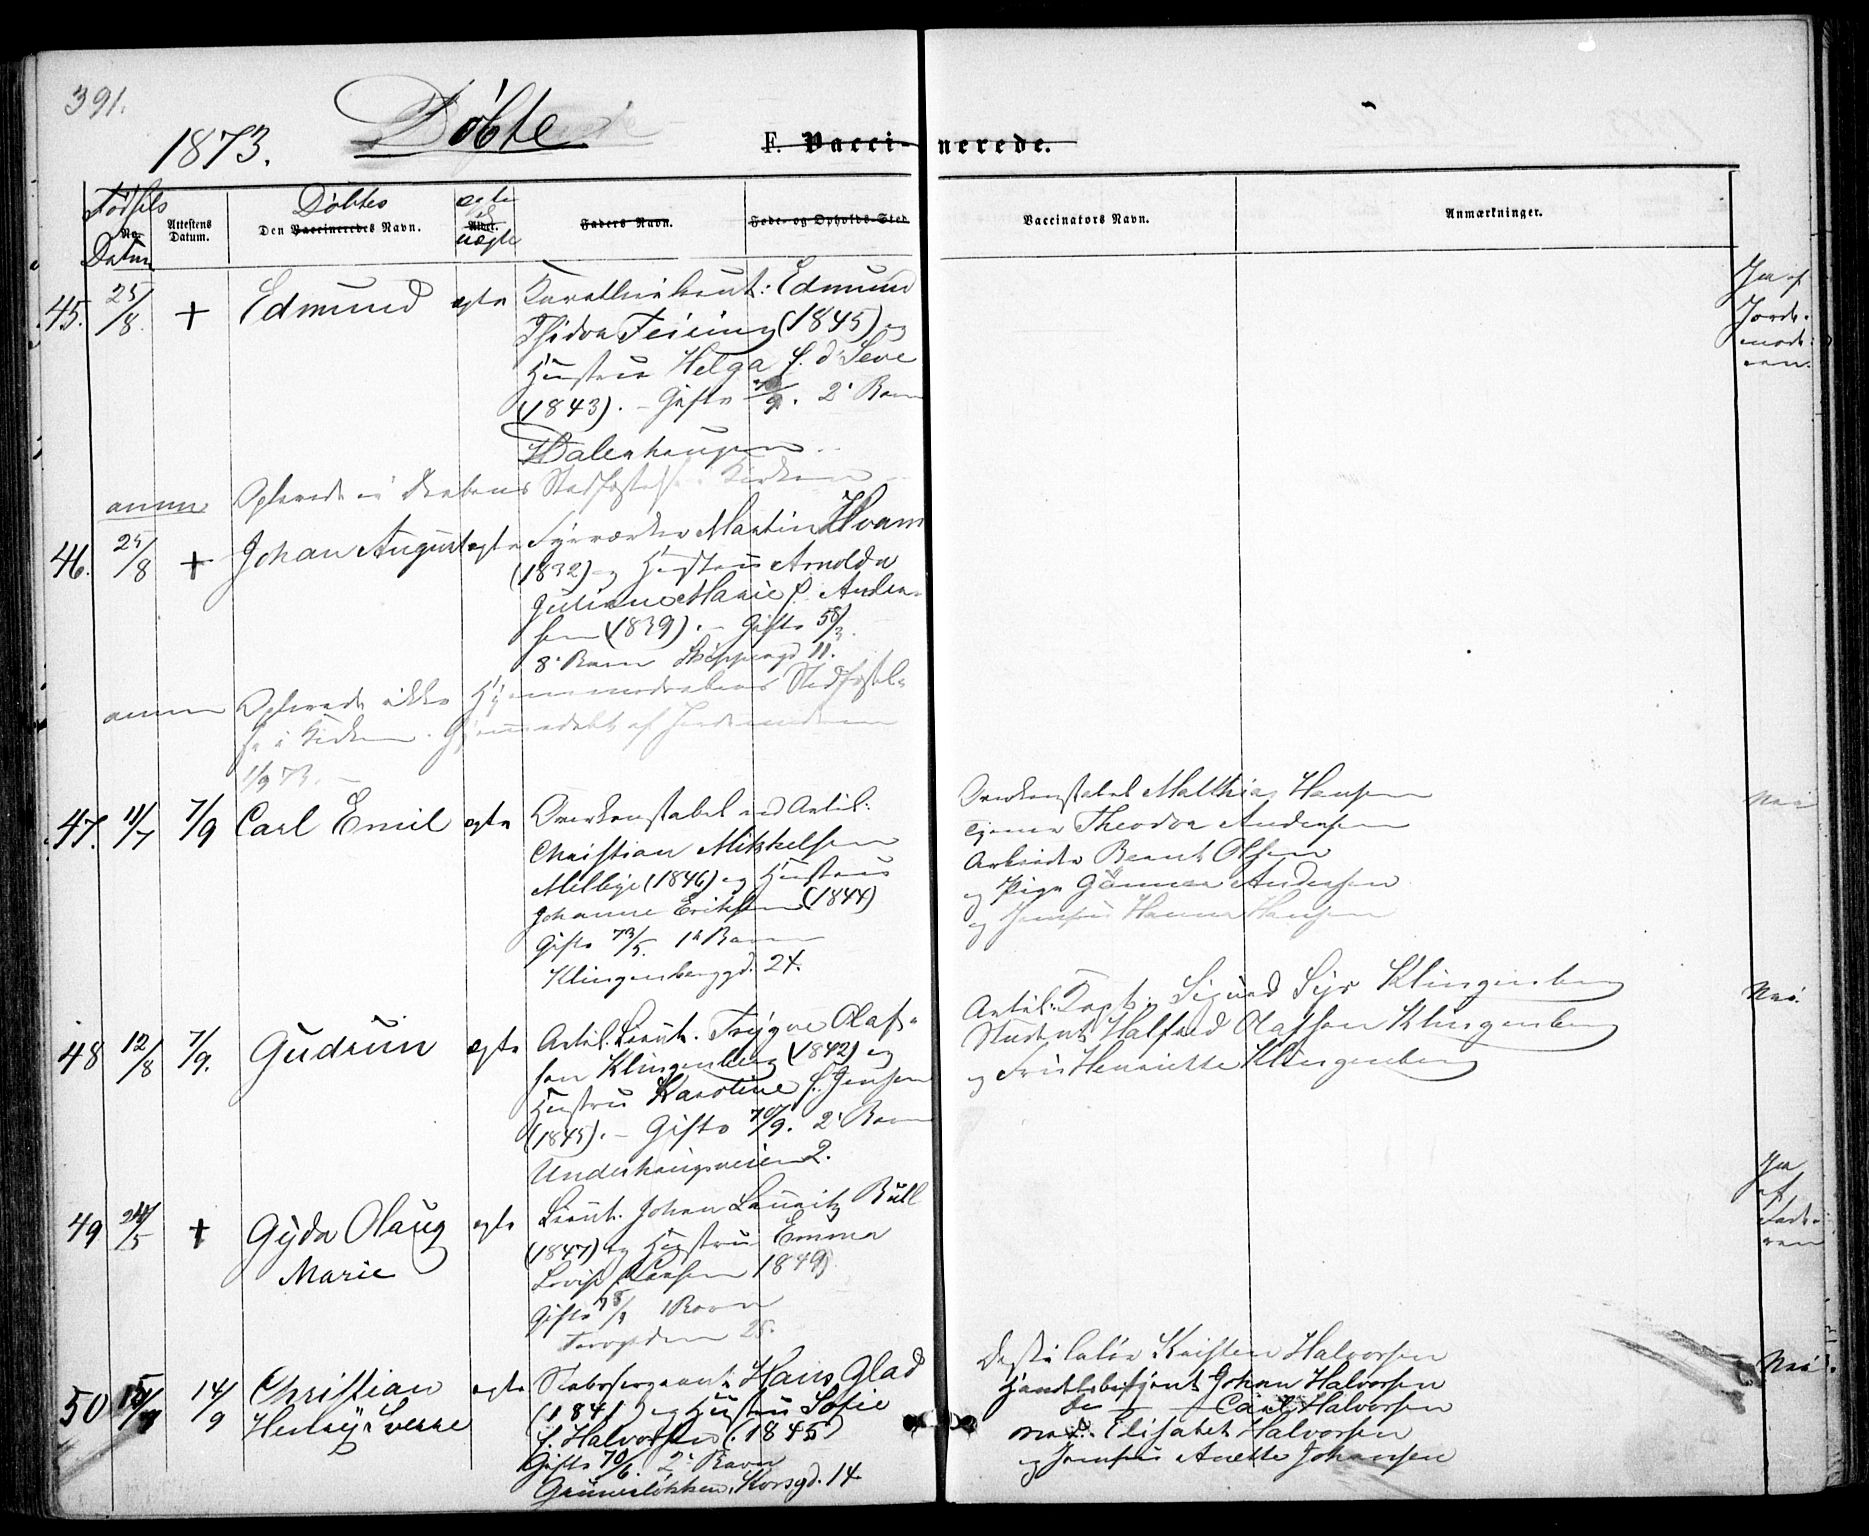 391.
1873.
Døbte
F. Vaccinerede.
Fødsels
No.
Datum
Attestens
Datum.
Døbtes
Den Vaccineredes Navn.
ægte
el
Alder.
uægte
Faders Navn.
Føde- og Opholds-Sted.
Vaccinators Navn.
Anmærkninger.
45. 25/8. + Edmund ægte Edmund
Feiring (1845) og
Hustru Helga f. d'Seve
(1843). – Gifte /9. 2' Barn
Dalenhaugen.
Ja af
Jorde-
mode-
ren.
anm Stadfæstelse i Kirken
46. 25/8 + Johan August ægte Fyrværker Martin Hvam
(1832) og Hustru Arnolda
Juliane Marie f. Ander-
sen (1839). – Gifte 58/3.
8' Barn Skippergd 11.
anm Opleved ikke Hjemmedaabens Stadfæstel-
se i Kirken. Hjemmedøbt af Jordemoderen
1/9 73. –
47. 11/7 7/9 Carl Emil ægte Overkonstabel ved Artil:
Christian Mikkelsen
Melbye (1846) og Hustru
Johanne Eriksen (1844)
Gifte 73/5. 1' Barn
Klingenberggd. 24.
Overkonstabel Matthias Hansen
Tjener Theodor Andersen
Arbeider Bernt Olsen
og Pige Andersen
og Jomfru Hanna Hansen
Nei
48 12/8 7/9. Gudrun ægte Artil. Lieut. Trygve Olaf-
sen Klingenberg (1842) og
Hustru Karoline f. Jensen
(1845). – Gifte 70/9. 2' Barn
Underhaugsveien 2.
Artil: Kapt. Sigurd Klingenberg
Student Halfred Olafsen Klingenberg
og Fru Henriette Klingenberg
Nei.
49 24/5 + Gyda Olaug ægte Lieut. Johan Lauritz Bull
Marie (1847) og Hustru Emma
Lovise Larsen 1849)
Gifte /9 1 Barn
25.
Ja
af
Fade-
ren
50 14/9 Christian ægte Hans Glad
Henry Sverre (1841) og Hustru Sofie
f. Halvorsen (1845)
Gifte 70/6. 2' Barn
Grünerløkken, Korsgd. 14
Destillatør Kristen Halvorsen
Handelsbetjent Johan Halvorsen
do – Carl Halvorsen
Mad. Elisabet Halvorsen
og Jomfru Anette Johansen
Nei